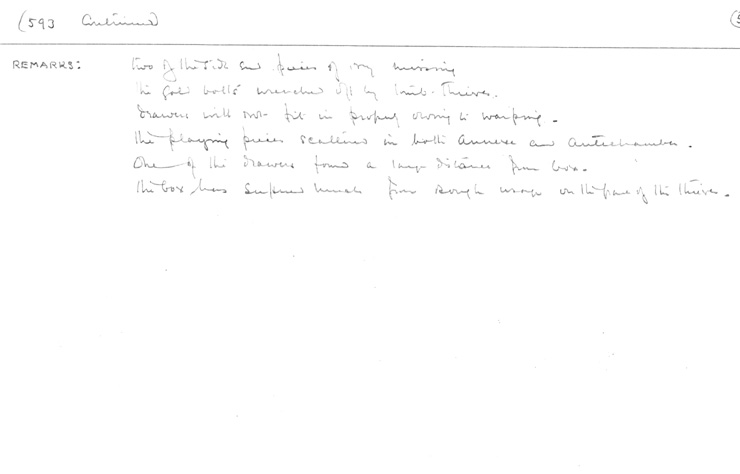 (593 Continued)
REMARKS: two of the side and pieces of ivory missing
The gold bolts wrenched off by tomb-thieves.
Drawers will not fit in properly owing to warping.
The playing pieces scattered in both Annexe and Antechamber.
One of the drawers found a long distance from box.
The box has suffered much from rough usage on the part of the thieves.